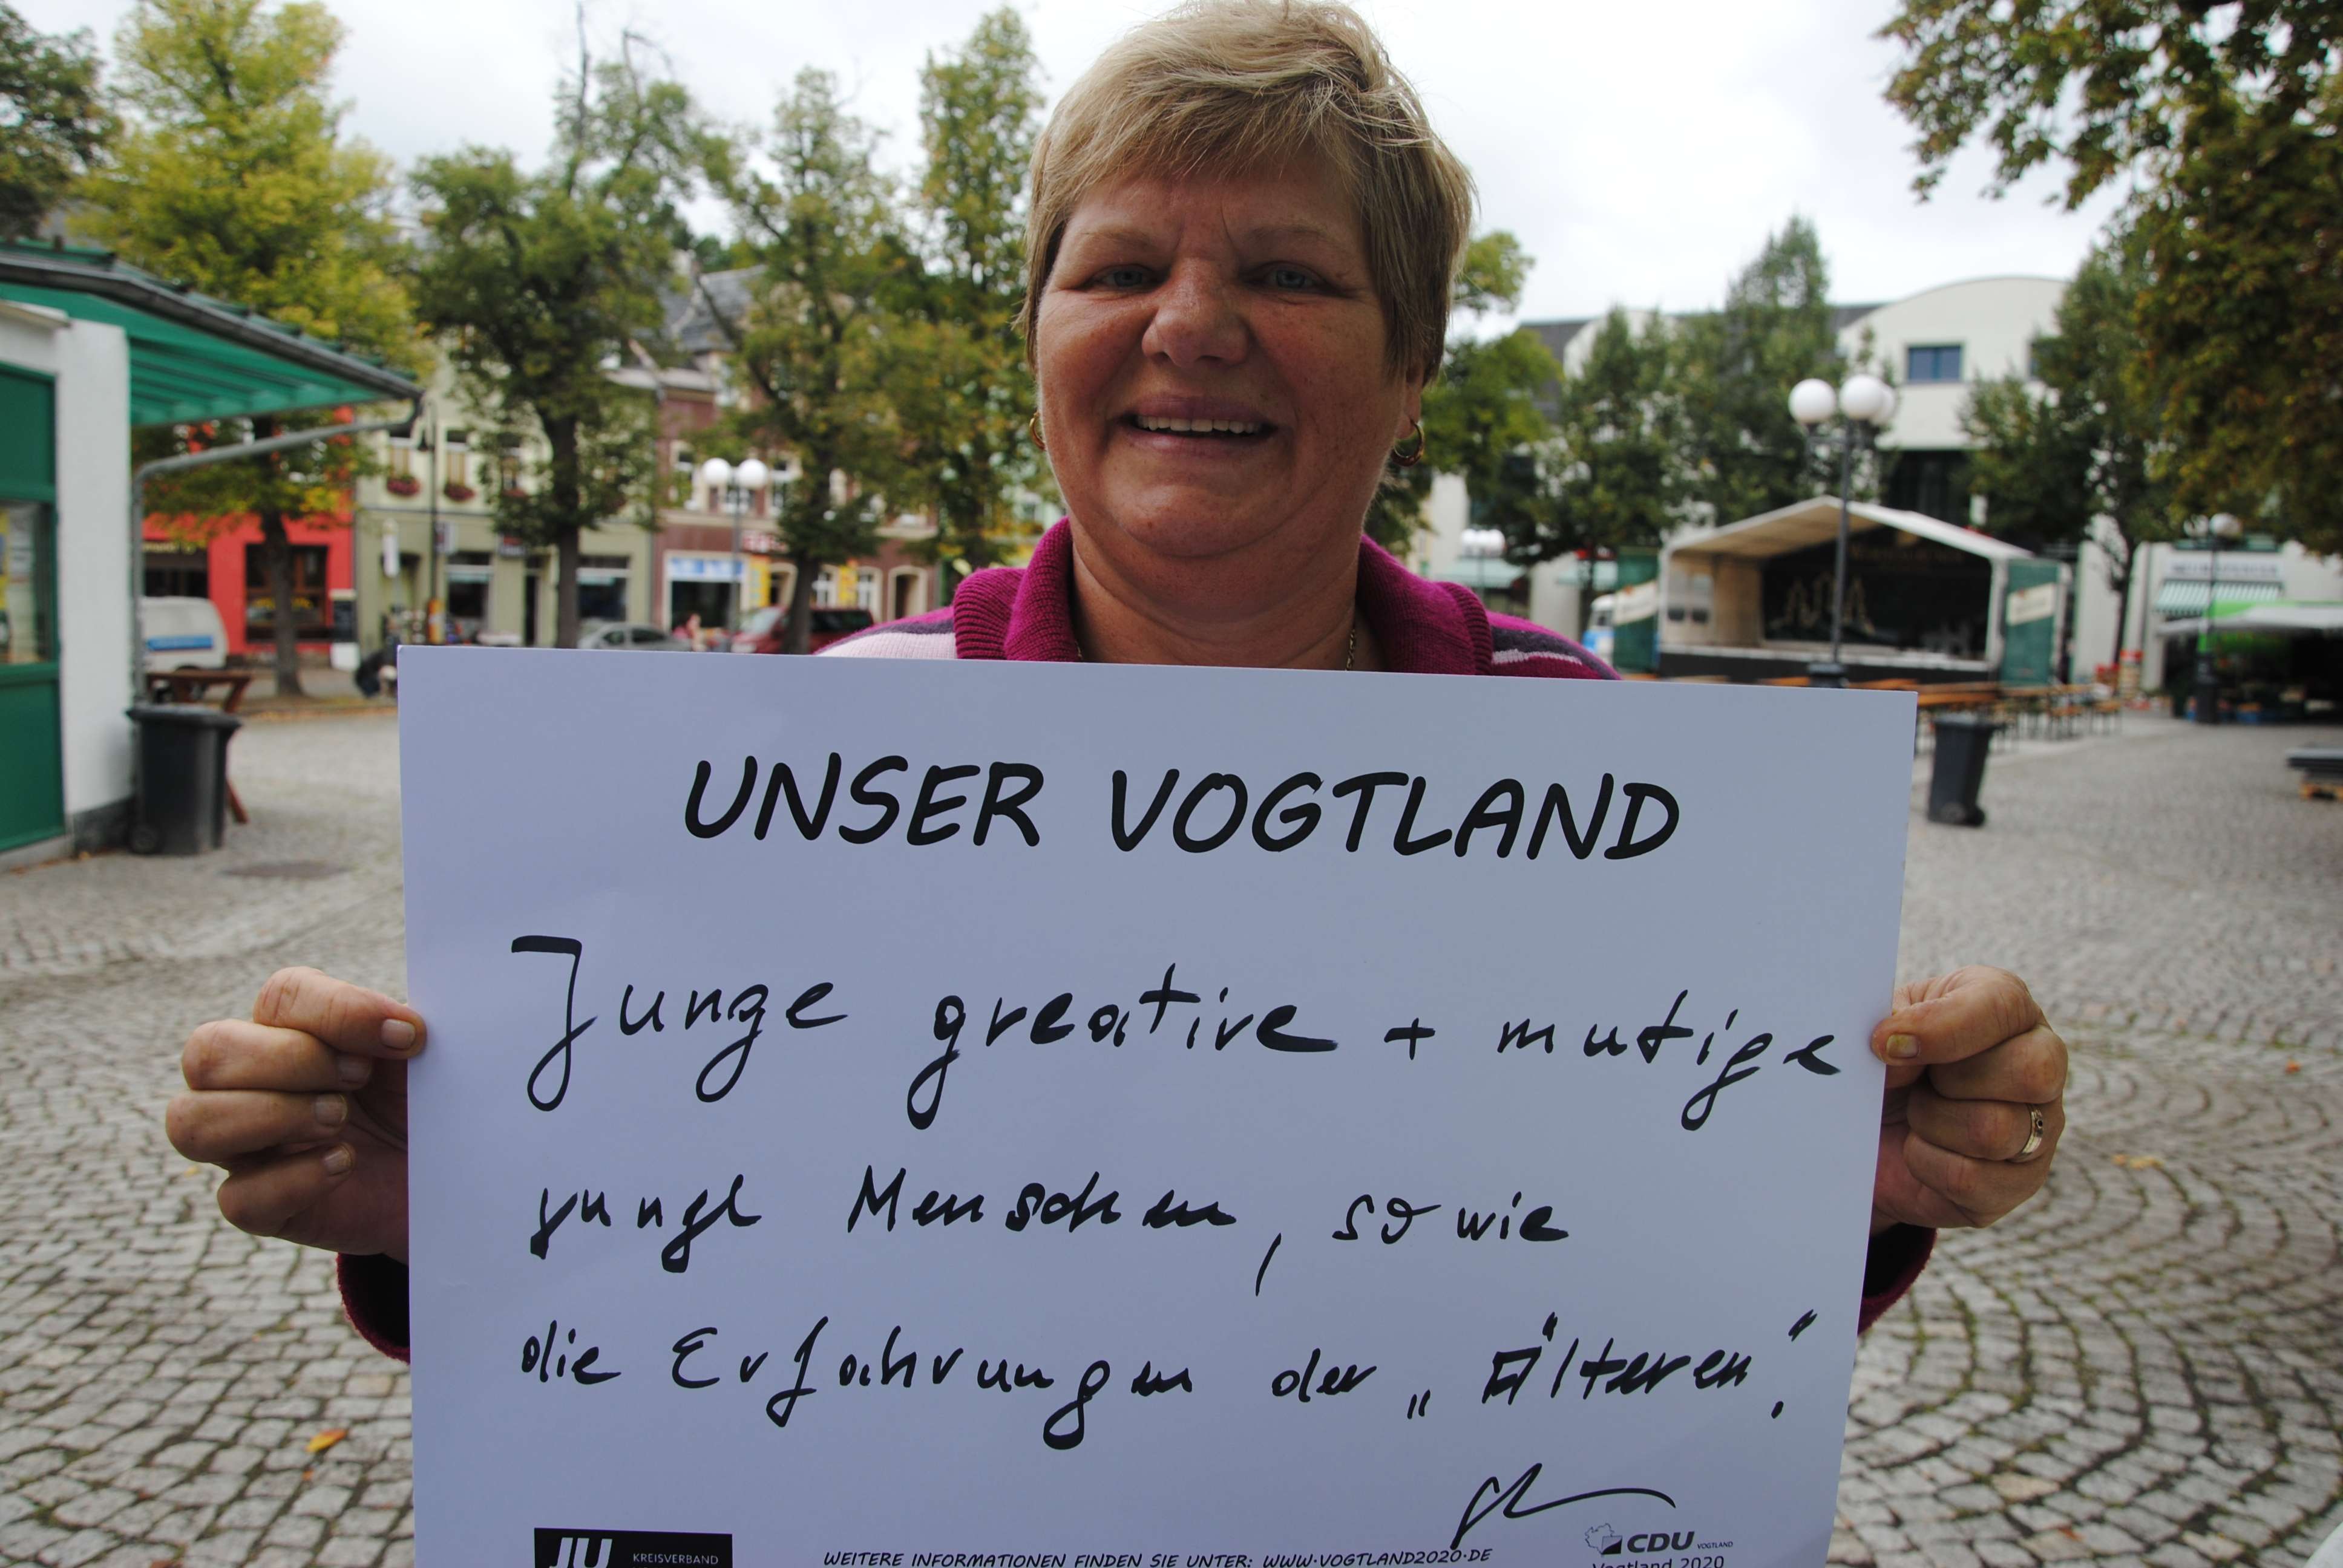 UNSER VOGTLAND
Junge greative + mutige
junge Menschen, sowie
die Erfahrungen der „Älteren“.
JU KREISVERBAND
WEITERE INFORMATIONEN FINDEN SIE UNTER: WWW.VOGTLAND2020.DE
CDU VOGTLAND
Vogtland 2020